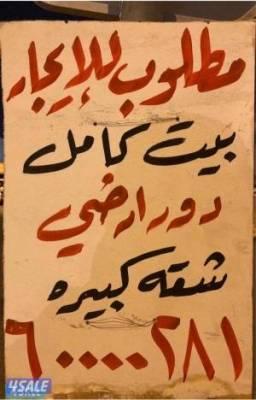 مطلوب للإيجار
بيت كامل
دور ارضي
شقه كبيره
٦٠٠٠٠٢٨١
4SALE